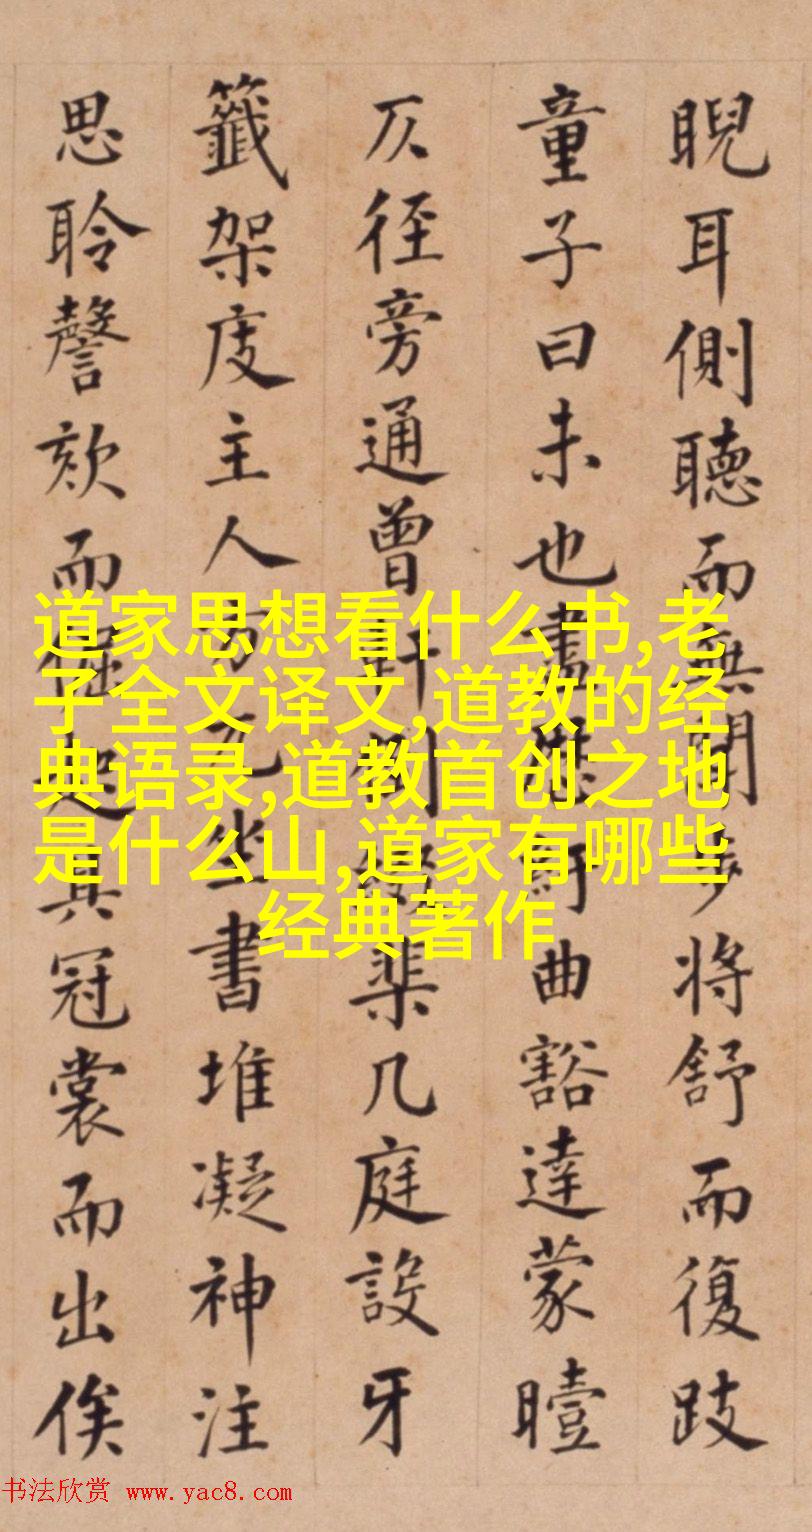 睨耳側聽而無聞步將舒而復跂
童子曰未也曲豁達蒙曀
仄徑旁通曾軒洞棐几庭設牙
籤架庋主人方兀坐書堆凝神注
思聆謦欬而倔起具冠裳而出俟
道家思想看什么书,老
子全文译文,道教的经
典语录,道教首创之地
是什么山,道家有哪些
经典著作
书法欣赏 www.yac8.com